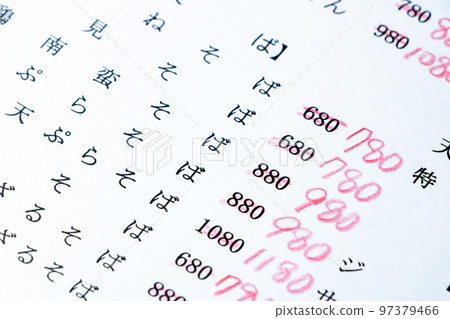 ん
780
980 1080
ば】
そば 680 780
ねそば 680 780
見そば 880 980
鶏南蛮そば 880 980
ぷらそば 1080 1180
天ぷらそば 680
ざるそば 880
ざるそば
天
特
ジ
サ
97379466